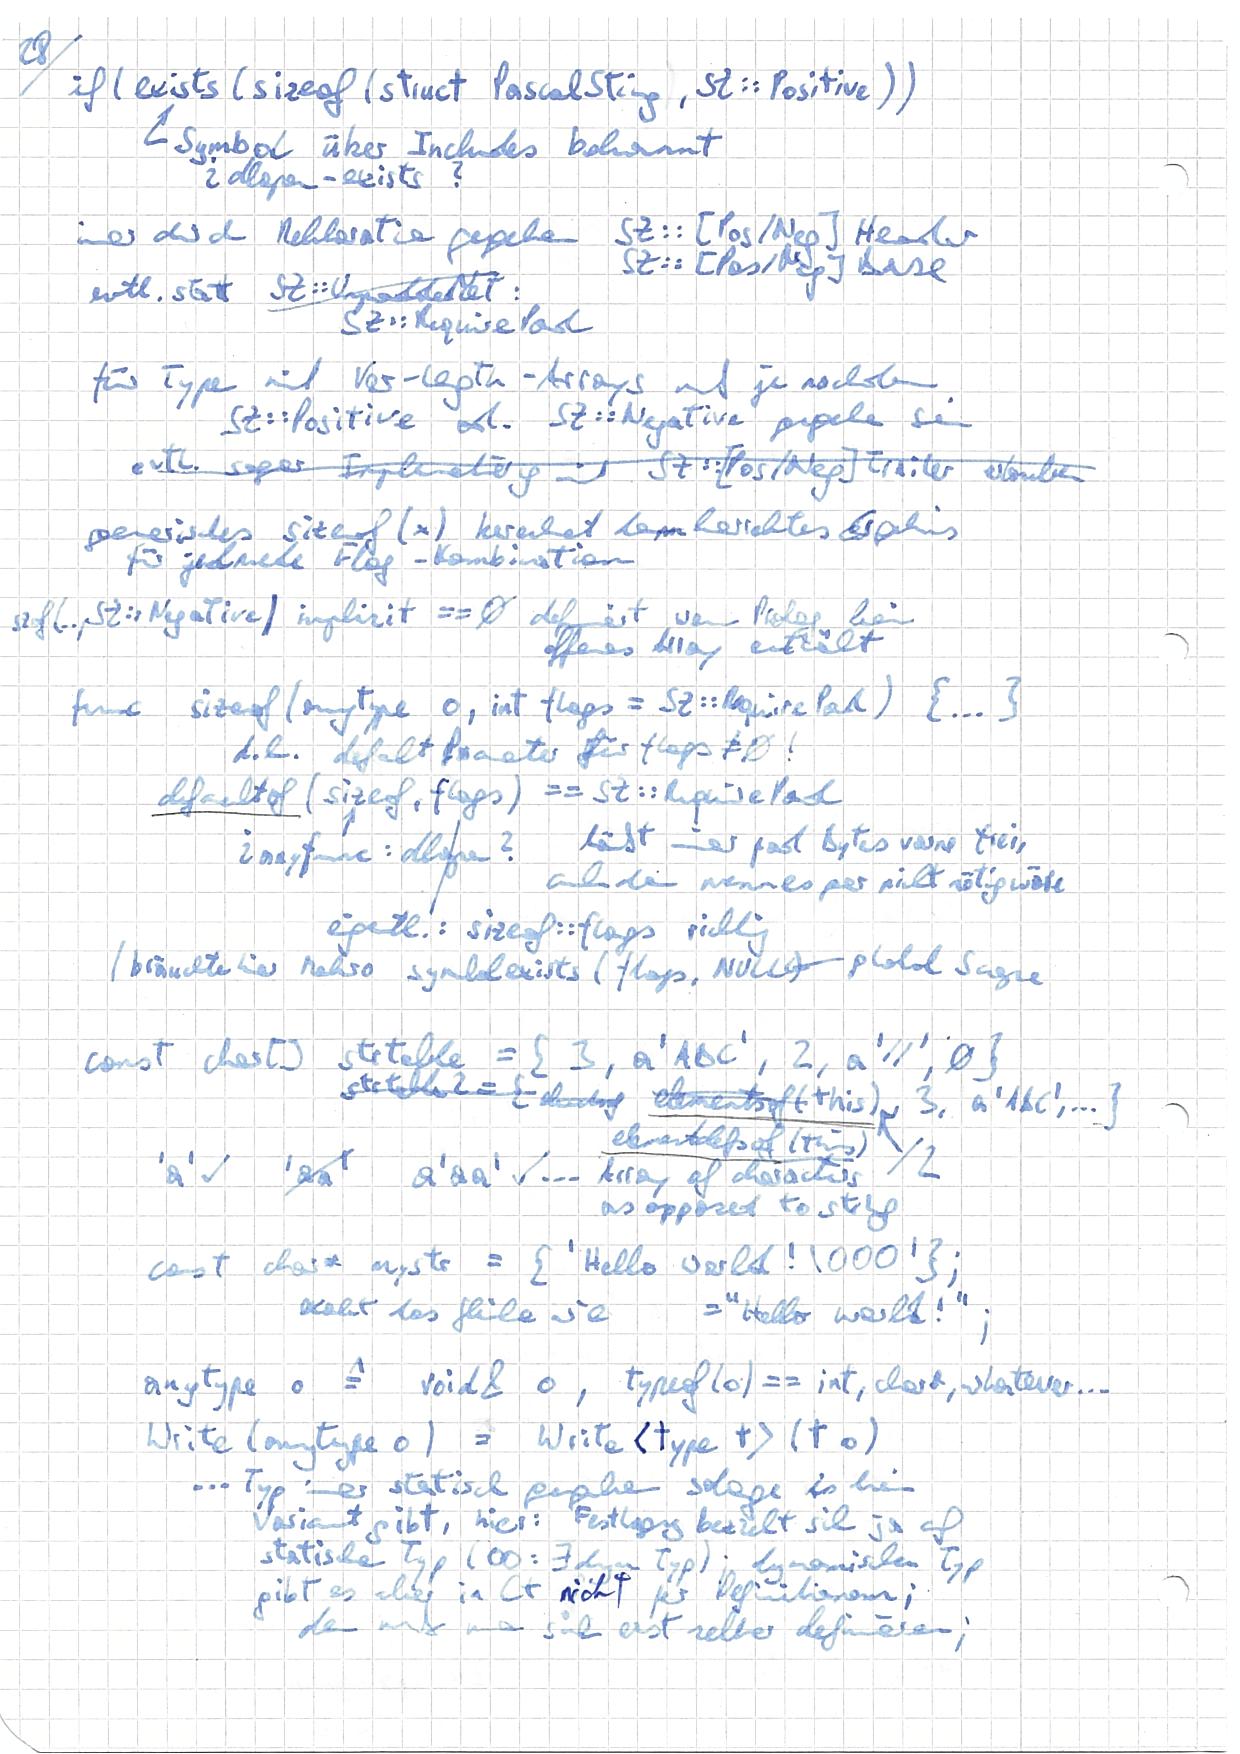 28/
if(exists(sizeof(struct PascalSting, SZ::Positive))
Symbol über Includes bekannt
¿dlopen-exists?
immer durch Deklaration gegeben SZ::[Pos/Neg]Header
SZ::[Pos/Neg]Base
evtl. statt SZ:: :
SZ::RequirePad
für Type mit Var-Length-Arrays muß je nachdem
SZ::Positive od. SZ::Negative gegeben sein
evtl. sogar Implementierung SZ::[Pos/Neg]
generisches sizeof(x) berechnet Ergebnis
für jedwede Flag-Kombination
szof(..,SZ::Negative) implizit ==0 definiert wenn kein
offenes Array enthält
func sizeof(anytype o, int flags = SZ::RequirePad) {...}
d.h. default Parameter für flags ≠0!
defaultof(sizeof, flags) == SZ::RequirePad
¿anyfunc:dlopen? läßt immer pad Bytes vorne frei,
auch dann wenn es gar nicht nötig wäre
eigentl.: sizeof::flags richtig
/bräuchte hier Makro symbolexists(flags, NULL)
const char[] strtable = { 3, a'ABC', 2, a'//', 0}
strtable2 = { elementsof(this), 3, a'ABC',...}
elementdefsof(this) /2
'a' ✓ 'aa' a'aa' ✓... Array of characters
as opposed to string
const char* mystr = {'Hello world!\000'};
macht das gleiche wie ="Hello world!";
anytype o ≙ void& o, typeof(o)== int, char*, whatever...
Write(anytype o) = Write<type t>(t o)
... Typ immer statisch gegeben solange es kein
Variant gibt, hier: Festlegung bezieht sich ja auf
statischen Typ (OO: ∃dyn Typ); dynamischen Typ
gibt es aber in C+ nicht per Definitionem;
den muß man sich erst selber definieren;